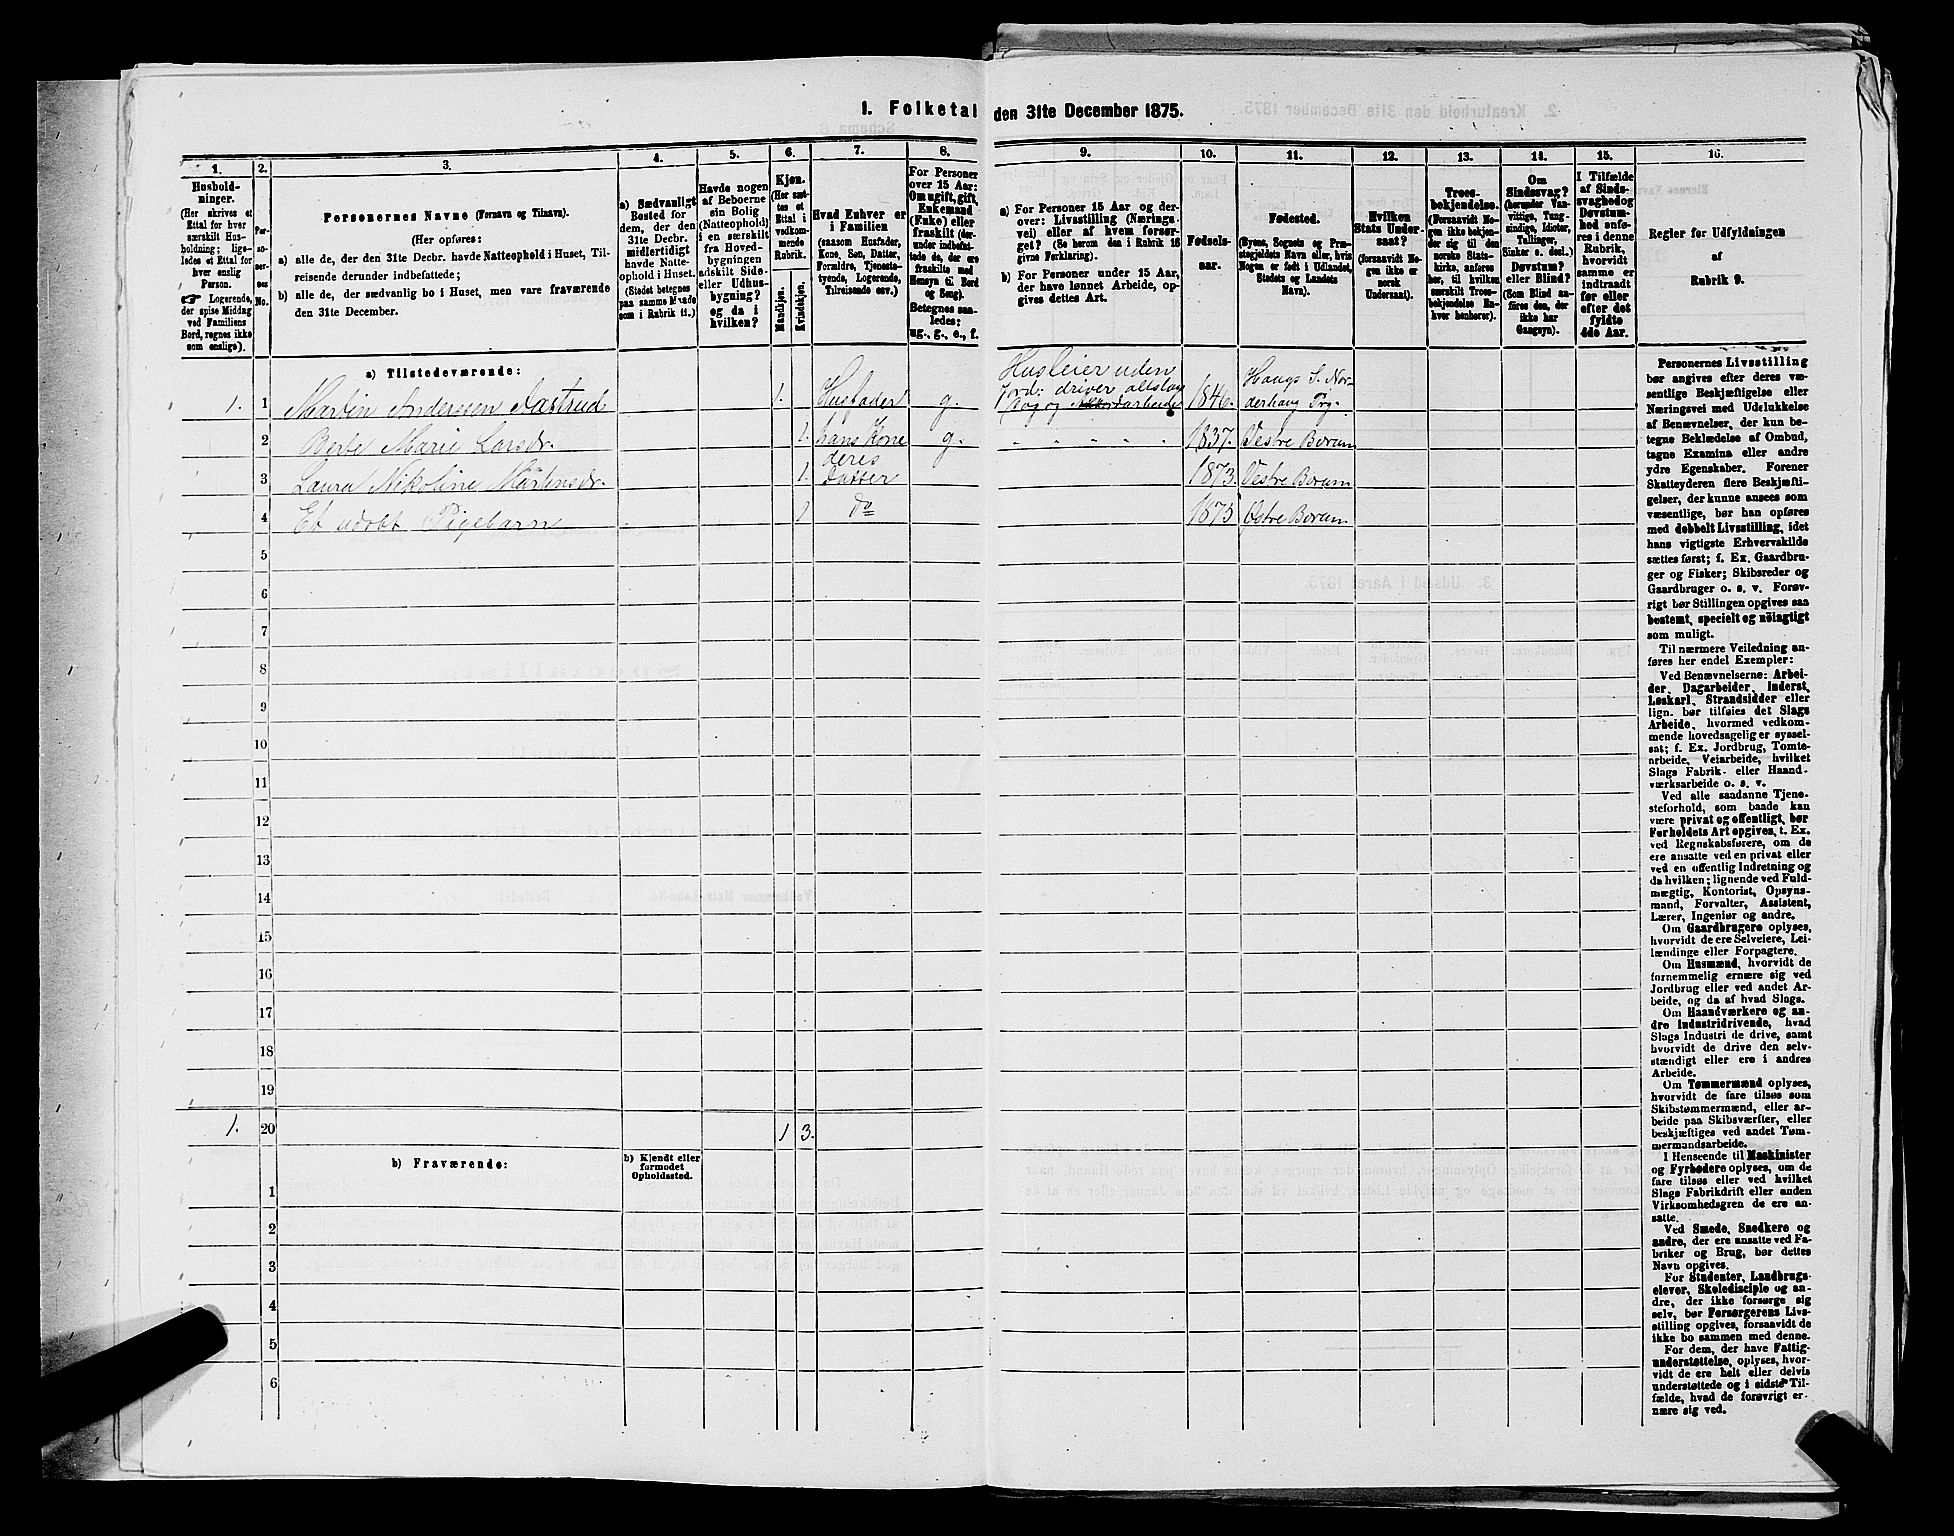 1. Folketal den 31te December 1875.
1.
2.
3.
4.
5.
6.
7.
8.
9.
10.
11.
12.
13.
14.
15.
16.
Hushold-
ninger.
(Her skrives et
Ettal for hver
særskilt Hus-
holdning; lige-
ledes et Ettal for
hver enslig
Person.
☛ Logerende,
der spise Middag
ved Familiens
Bord, regnes ikke
som enslige).
Per-
so-
ner-
nes
No.
Personernes Navne (Fornavn og Tilnavn).
(Her opføres:
a) alle de, der den 31te Decbr. havde Natteophold i Huset, Til-
reisende derunder indbefattede;
b) alle de, der sædvanlig bo i Huset, men vare fraværende
den 31te December.
a) Sædvanligt
Bosted for
dem, der den
31te Decbr.
midlertidigt
havde Natte-
ophold i Huset.
(Stedet betegnes
paa samme Maade
som i Rubrik 11.)
Havde nogen
af Beboerne
sin Bolig
(Natteophold)
i en særskilt
fra Hoved-
bygningen
adskilt Side-
eller Udhus-
bygning?
og da i
hvilken?
Kjøn.
(Her sæt-
tes et
Ettal i
vedkom-
mende
Rubrik.
Mandkjøn.
Kvindekjøn.
Hvad Enhver er
i Familien
(saasom Husfader,
Kone, Søn, Datter,
Forældre, Tjeneste-
tyende, Logerende,
Tilreisende osv.)
For Personer
over 15 Aar:
Om ugift, gift,
Enkemand
(Enke) eller
fraskilt (der-
under indbefat-
tede de, der ere
fraskilte med
Hensyn til Bord
og Seng).
Betegnes saa-
ledes:
ug., g., e., f.
a) For Personer 15 Aar og der-
over: Livsstilling (Nærings-
vei) eller af hvem forsør-
get? (Se herom den i Rubrik 16
givne Forklaring).
b) For Personer under 15 Aar,
der have lønnet Arbeide, op-
gives dettes Art.
Fødsels-
aar.
Fødested.
(Byens, Sognets og Præ-
stegjeldets Navn eller, hvis
Nogen er født i Udlandet,
Stedets og Landets
Navn).
Hvilken
Stats Under-
saat?
(forsaavidt No-
gen ikke er
norsk
Undersaat).
Troes-
bekjendelse.
(Forsaavidt No-
gen ikke bekjen-
der sig til den
norske Stats-
kirke, anføres
her, til hvilken
særskilt Troes-
bekjendelse En-
hver henhører).
Om
Sindssvag?
(herunder Van-
vittige, Tung-
sindige, Idioter,
Tullinger,
Sinker o. desl.)
Døvstum?
eller Blind?
(Som Blind an-
føres den, der
ikke har
Gangsyn).
I Tilfælde
af Sinds-
svaghed og
Døvstum-
hed anfø-
res i denne
Rubrik,
hvorvidt
samme er
indtraadt
før eller
efter det
fyldte
4de Aar.
Regler for Udfyldningen
af
Rubrik 9.
a) Tilstedeværende:
1. 1 Martin Anderssen Aastrud 1. Husfader g. Husleier uden
Jord: driver 1846. Haugs S. Nor-
derhaug Prg.
2 Berte Marie Larsdr. 1. hans Kone g. " " " " " 1837. Vestre Bærum
3 Laura Nikoline Martinsdr. 1. deres
datter 1873. Vestre Bærum
4 Et udøbt Pigebarn 1 do 1875 Vestre Bærum
5
6
7
8
9
10
11
12
13
14
15
16
17
18
19
1. 20 1 3.
b) Fraværende:
b) Kjendt eller
formodet
Opholdssted.
1
2
3
4
5
6
Personernes Livsstilling
bør angives efter deres væ-
sentlige Beskjæftigelse eller
Næringsvei med Udelukkelse
af Benævnelser, der kun be-
tegne Beklædelse af Ombud,
tagne Examina eller andre
ydre Egenskaber. Forener
Skatteyderen flere Beskjæfti-
gelser, der kunne ansees som
væsentlige, bør han opføres
med dobbelt Livsstilling, idet
hans vigtigste Erhvervskilde
sættes først; f. Ex. Gaardbru-
ger og Fisker; Skibsreder og
Gaardbruger o. s. v. Forøv-
rigt bør Stillingen opgives saa
bestemt, specielt og nøiagtigt
som muligt.
Til nærmere Veiledning an-
føres her endel Exempler:
Ved Benævnelserne: Arbei-
der, Dagarbeider, Inderst,
Løskarl, Strandsidder eller
lign. bør tilføies det Slags
Arbeide, hvormed vedkom-
mende hovedsagelig er syssel-
sat; f. Ex. Jordbrug, Tomte-
arbeide, Veiarbeide, hvilket
Slags Fabrik- eller Haand-
værksarbeide o. s. v.
Ved alle saadanne Tjene-
steforhold, som baade kan
være privat og offentligt, bør
Forholdets Art opgives, t. Ex.
ved Regnskabsførere, om de
ere ansatte ved en privat eller
ved en offentlig Indretning og
da hvilken; lignende ved Fuld-
mægtig, Kontorist, Opsyns-
mand, Forvalter, Assistent,
Lærer, Ingeniør og andre.
Om Gaardbrugere oplyses,
hvorvidt de ere Selveiere, Lei-
lændinge eller Forpagtere.
Om Husmænd, hvorvidt de
fornemmelig ernære sig ved
Jordbrug eller ved andet Ar-
beide, og da af hvad Slags.
Om Haandværkere og an-
dre Industridrivende, hvad
Slags Industri de drive, samt
hvorvidt de drive den selv-
stændigt eller ere i andres
Arbeide.
Om Tømmermænd oplyses,
hvorvidt de fare tilsøs som
Skibstømmermænd, eller ar-
beide paa Skibsværfter, eller
beskjæftiges ved andet Tøm-
mermandsarbeide.
I Henseende til Maskinister
og Fyrbødere oplyses, om de
fare tilsøs eller ved hvilket
Slags Fabrikdrift eller anden
Virksomhedsgren de ere an-
satte.
Ved Smede, Snedkere og
andre, der ere ansatte ved Fa-
briker og Brug, bør dettes
Navn opgives.
For Studenter, Landbrugs-
elever, Skoledisciple og an-
dre, der ikke forsørge sig
selv, bør Forsørgerens Livs-
stilling opgives, forsaavidt de
ikke bo sammen med denne.
For dem, der have Fattig-
understøttelse, oplyses, hvor-
vidt de ere helt eller delvis
understøttede og i sidste Til-
fælde, hvad de forøvrigt er-
nære sig ved.